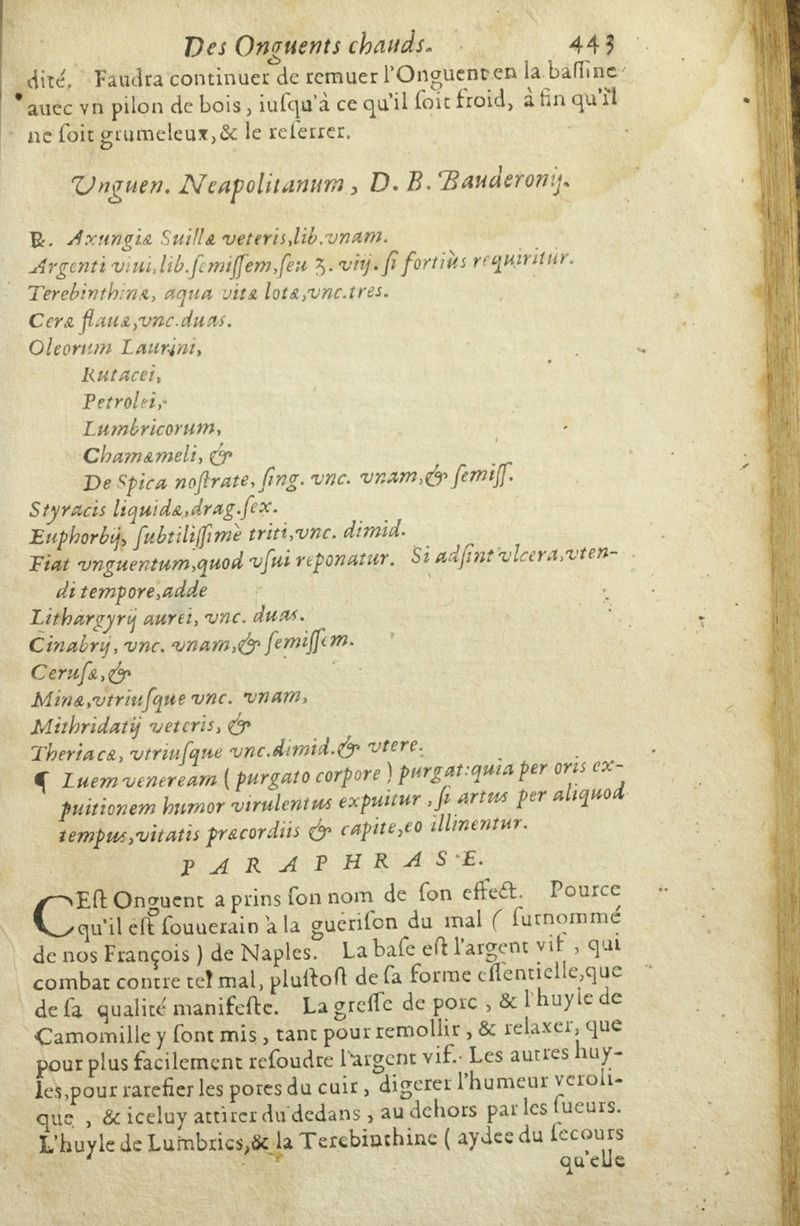 Des Onguents chauds. 443
dité. Faudra continuer de remuer l'Onguent en la baſſine
auec vn pilon de bois, iuſqu'à ce qu'il ſoit froid, à fin qu'il
ne ſoit grumeleux, & le reſerrer.
Vnguen. Neapolitanum, D. B. Bauderonij.
℞. Axungiæ Suillæ veteris, lib. vnam.
Argenti viui, lib. ſemiſſem, ſeu ℥. viij. ſi fortiùs requiritur.
Terebinthinæ, aqua vitæ lotæ, vnc. tres.
Ceræ flauæ, vnc. duas.
Oleorum Laurini,
Rutacei,
Petrolei,
Lumbricorum,
Chamæmeli, &
De Spica noſtrate, ſing. vnc. vnam, & ſemiſſ.
Styracis liquidæ, drag. ſex.
Euphorbij, ſubtiliſſimè triti, vnc. dimid.
Fiat vnguentum, quod vſui reponatur. Si adſint vlcera, vten-
di tempore, adde
Lithargyrij aurei, vnc. duas.
Cinabrij, vnc. vnam, & ſemiſſem.
Ceruſæ, &
Minæ, vtriuſque vnc. vnam,
Mithridatij veteris, &
Theriacæ, vtriuſque vnc. dimid. & vtere.
¶ Luem veneream (purgato corpore) purgat: quia per oris ex-
puitionem humor virulentus expuitur, ſi artus per aliquod
tempus, vitatis præcordiis & capite, eo illinentur.
PARAPHRASE.
CEſt Onguent a prins ſon nom de ſon effect. Pource
qu'il eſt ſouuerain à la guériſon du mal ( ſurnommé
de nos François ) de Naples. La baſe eſt l'argent vif, qui
combat contre tel mal, pluſtoſt de ſa forme eſſentielle, que
de ſa qualité manifeſte. La greſſe de porc, & l'huyle de
Camomille y ſont mis, tant pour remollir, & relaxer, que
pour plus facilement reſoudre l'argent vif. Les autres huy-
les, pour rarefier les pores du cuir, digerer l'humeur veroli-
que, & iceluy attirer du dedans, au dehors par les ſueurs.
L'huyle de Lumbrics, & la Terebinthine ( aydee du ſecours
qu'elle